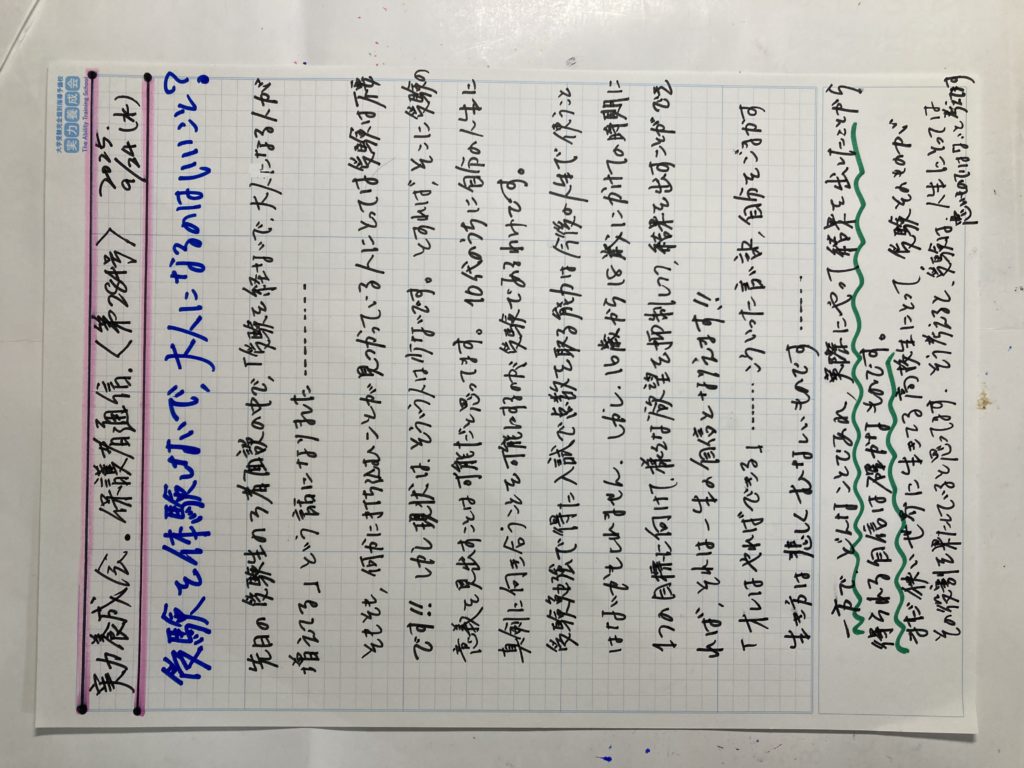 大学受験完全個別指導予備校
実力養成会
The Ability Training School
実力養成会。保護者通信.〈第284号〉2025 9/24(水)
受験を体験しないで、大人になるのはいいこと？
先日の受験生の三者面談の中で、「受験を経ないで、大人になる人が
増えてる」という話になりました…………
そもそも、何かに打ち込むことが見つかっている人にとっては受験は不要
です!! しかし現状は、そういう人は少ないです。とすれば、そこに受験の
意義を見出すことは可能だと思ってます。10代のうちに自分の人生に
真剣に向き合うことを可能にするのが受験であるわけです。
受験勉強で得た入試で点数を取る能力は今後の人生で使うこと
はないかもしれません。しかし、16歳から18歳にかけての時期に
1つの目標に向けて、様々な欲望を抑制して、結果を出すことができ
れば、それは一生の自信となりえます!!
「オレはやればできる」………こういった言い訳、自分をごまかす
生き方は悲しくむなしいものです………
一方で、どんなことであれ、実際にやって結果を出したことから
得られる自信は確かなものです。
まだ狭いせかいに生きてる高校生にとって、受験そのものが
その役割を果たしていると思ってます。そう考えると、受験は、人生にとっては
悪いものではないと考えます